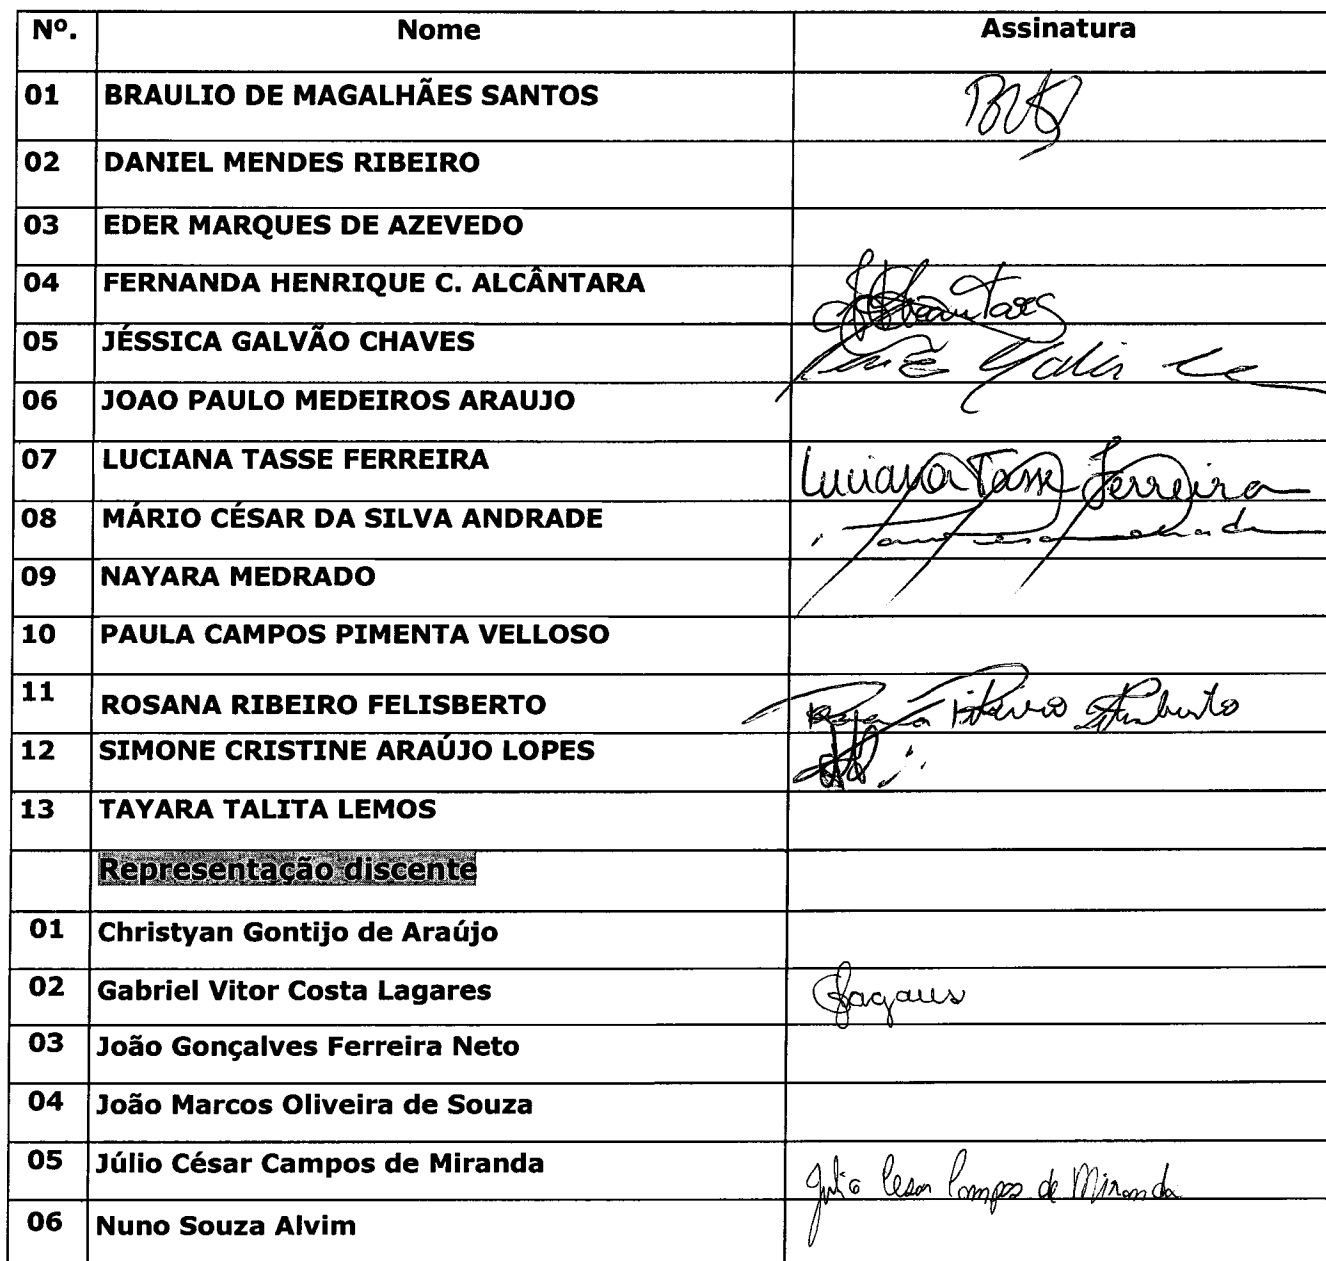 Nº. Nome Assinatura
01 BRAULIO DE MAGALHÃES SANTOS
02 DANIEL MENDES RIBEIRO
03 EDER MARQUES DE AZEVEDO
04 FERNANDA HENRIQUE C. ALCÂNTARA
05 JÉSSICA GALVÃO CHAVES
06 JOAO PAULO MEDEIROS ARAUJO
07 LUCIANA TASSE FERREIRA Luciana Tasse Ferreira
08 MÁRIO CÉSAR DA SILVA ANDRADE
09 NAYARA MEDRADO
10 PAULA CAMPOS PIMENTA VELLOSO
11 ROSANA RIBEIRO FELISBERTO Rosana Ribeiro Felisberto
12 SIMONE CRISTINE ARAÚJO LOPES
13 TAYARA TALITA LEMOS
Representação discente
01 Christyan Gontijo de Araújo
02 Gabriel Vitor Costa Lagares
03 João Gonçalves Ferreira Neto
04 João Marcos Oliveira de Souza
05 Júlio César Campos de Miranda Julio Cesar Campos de Miranda
06 Nuno Souza Alvim